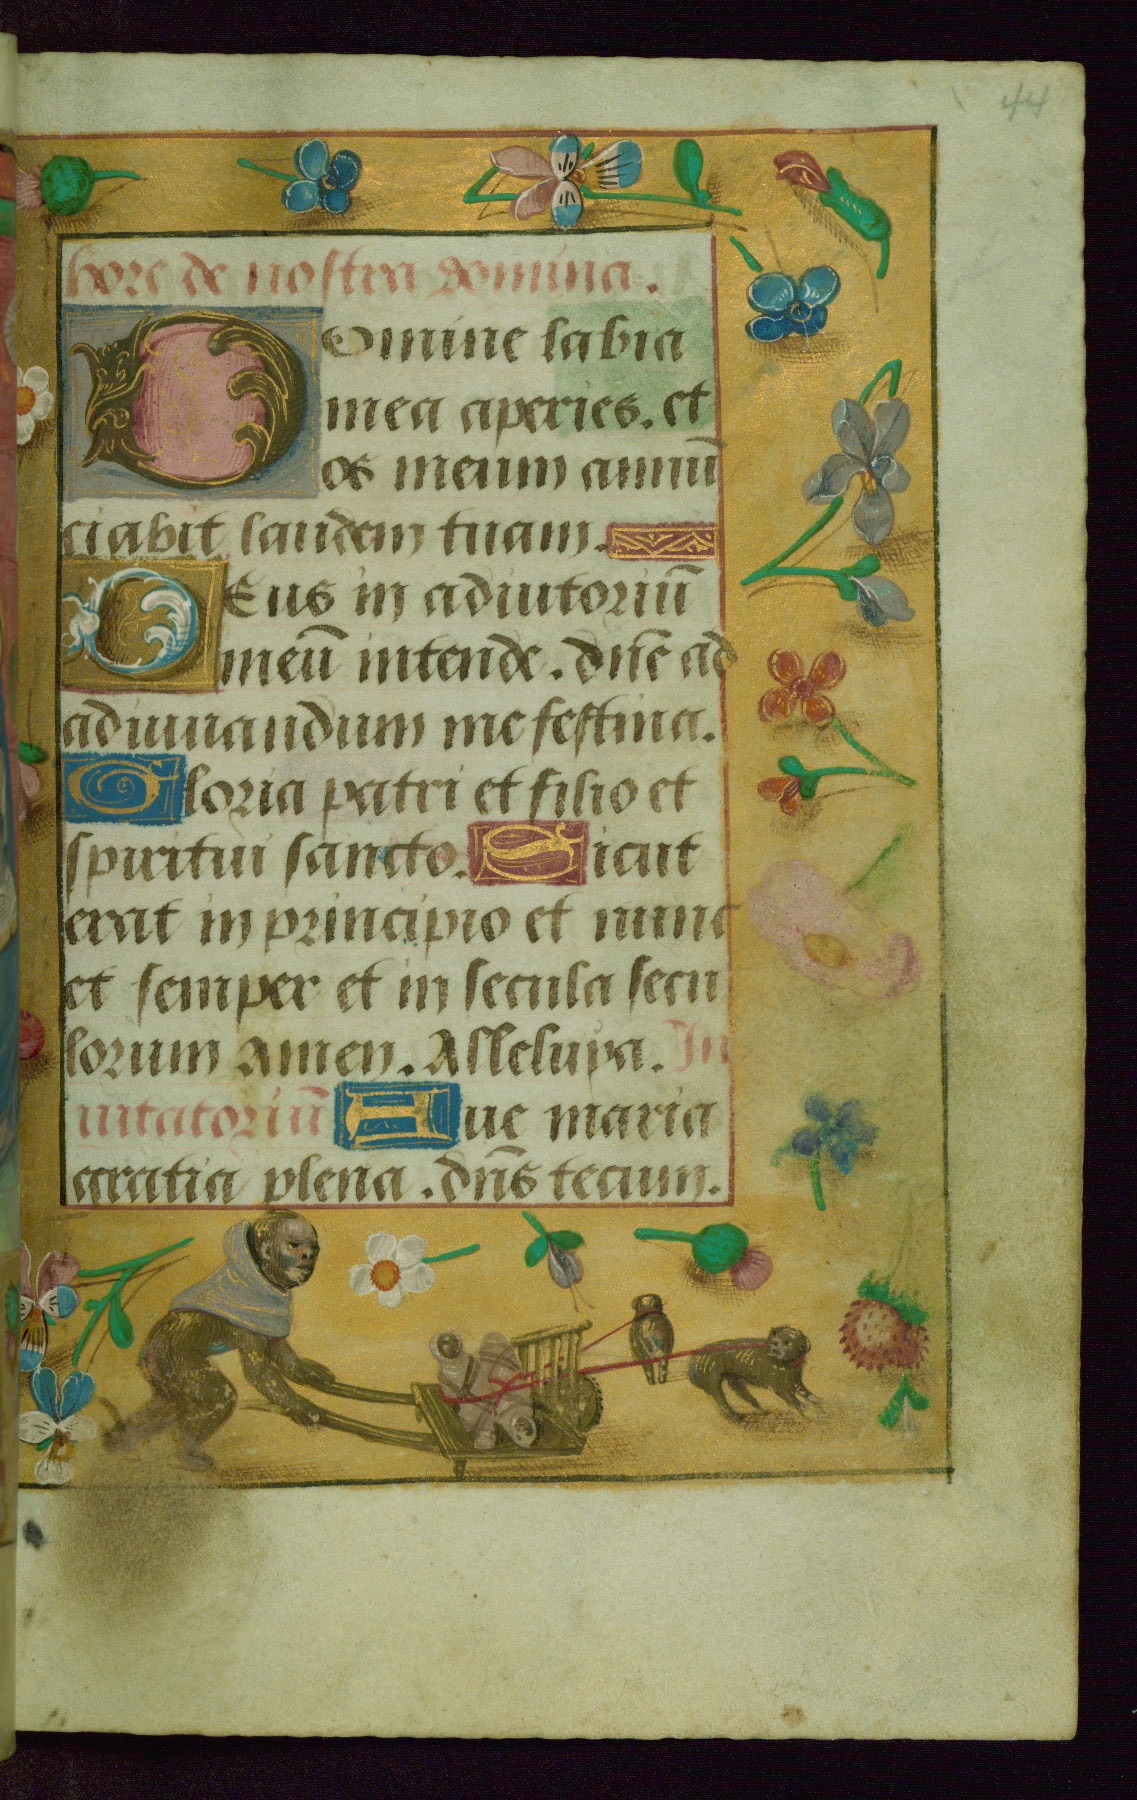 44
hore de nostra domina.
Domine labia
mea aperies. et
os meum annū
ciabit laudem tuam.
DEus in adiutoriū
meū intende. dn̄e ad
adiuuandum me festina.
Gloria patri et filio et
spiritui sancto. Sicut
erat in principio et nunc
et semper et in secula secu
lorum Amen. Alleluya. In
uitatoriū Aue maria
gratia plena. dn̄s tecum.